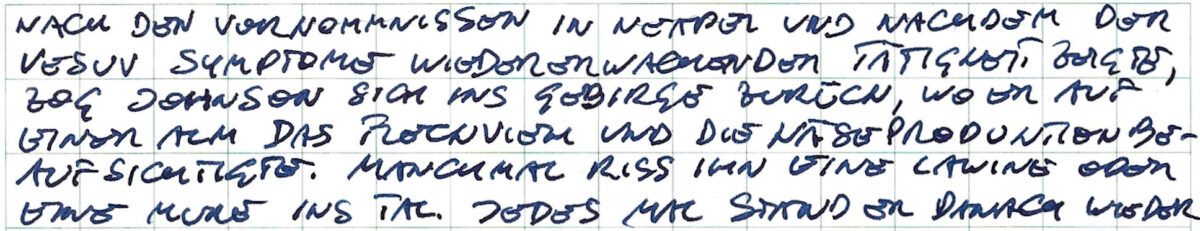 NACH DEN VORKOMMNISSEN IN NEAPEL UND NACHDEM DER
VESUV SYMPTOME WIEDERERWACHENDER TÄTIGKEIT ZEIGTE,
ZOG JOHNSON SICH INS GEBIRGE ZURÜCK, WO ER AUF
EINER ALM DAS FLECKVIEH UND DIE KÄSEPRODUKTION BE-
AUFSICHTIGTE. MANCHMAL RISS IHN EINE LAWINE ODER
EINE MURE INS TAL. JEDES MAL STAND ER DANACH WIEDER